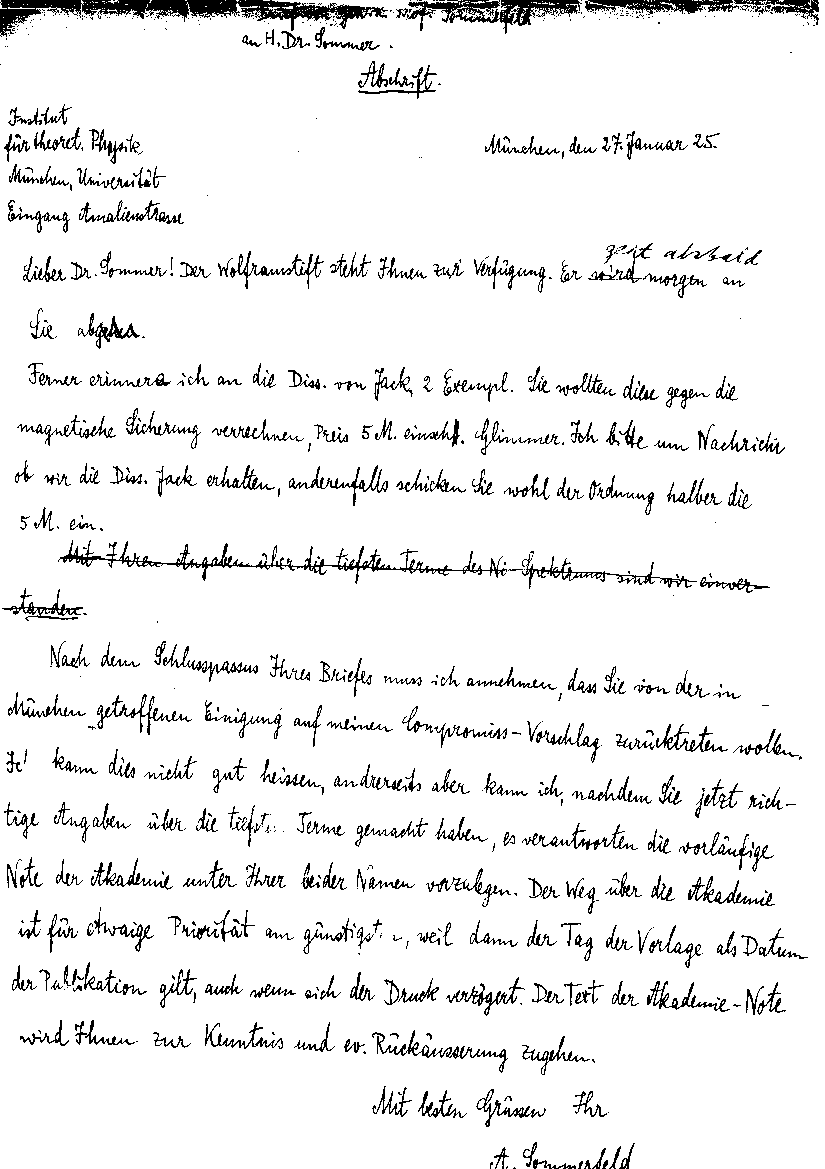 Prof. Sommerfeld
an H. Dr. Sommer.
Abschrift.
Institut
für theoret. Physik
München, Universität
Eingang Amalienstrasse
München, den 27. Januar 25.
geht alsbald
Lieber Dr. Sommer! Der Wolframstift steht Ihnen zur Verfügung. Er wird morgen an
Sie ab.
Ferner erinnere ich an die Diss. von Jack, 2 Exempl. Sie wollten diese gegen die
magnetische Sicherung verrechnen, Preis 5 M. einschl. Glimmer. Ich bitte um Nachricht
ob wir die Diss. Jack erhalten, anderenfalls schicken Sie wohl der Ordnung halber die
5 M. ein.
Mit Ihren Angaben über die tiefsten Terme des Ni-Spektrums sind wir einver-
standen.
Nach dem Schlusspassus Ihres Briefes muss ich annehmen, dass Sie von der in
München getroffenen Einigung auf meinen Compromiss-Vorschlag zurücktreten wollen.
Ich kann dies nicht gut heissen, andrerseits aber kann ich, nachdem Sie jetzt rich-
tige Angaben über die tiefsten Terme gemacht haben, es verantworten die vorläufige
Note der Akademie unter Ihrer beider Namen vorzulegen. Der Weg über die Akademie
ist für etwaige Priorität am günstigsten, weil dann der Tag der Vorlage als Datum
der Publikation gilt, auch wenn sich der Druck verzögert. Der Text der Akademie-Note
wird Ihnen zur Kenntnis und ev. Rückäusserung zugehen.
Mit besten Grüssen Ihr
A. Sommerfeld